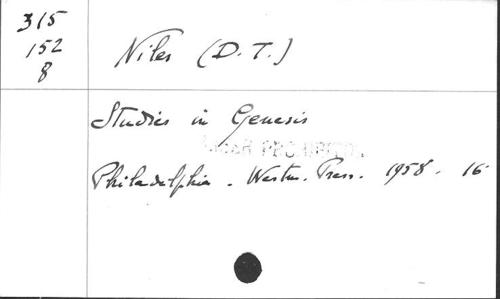 315
152
8
Niles (D. T.)
Studies in Genesis
Philadelphia. Westm. Press. 1958. 16